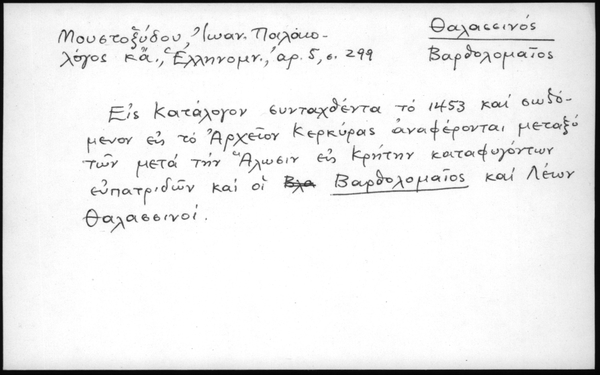 Μουστοξύδου, Ἰωαν. Παιλαιο-
λόγος κἄ., "Ἑλληνομν.," αρ. 5, σ. 299
Θαλασσινός
Βαρθολομαῖος
Εἰς κατάλογον συνταχθέντα τό 1453 καί σωζό-
μενον εἰς τό Ἀρχεῖον Κερκύρας ἀναφέρονται μεταξύ
τῶν μετά τήν Ἅλωσιν εἰς Κρήτην καταφυγόντων
εὐπατριδῶν καί οἱ Βαρθολομαῖος καί Λέων
Θαλασσινοί.